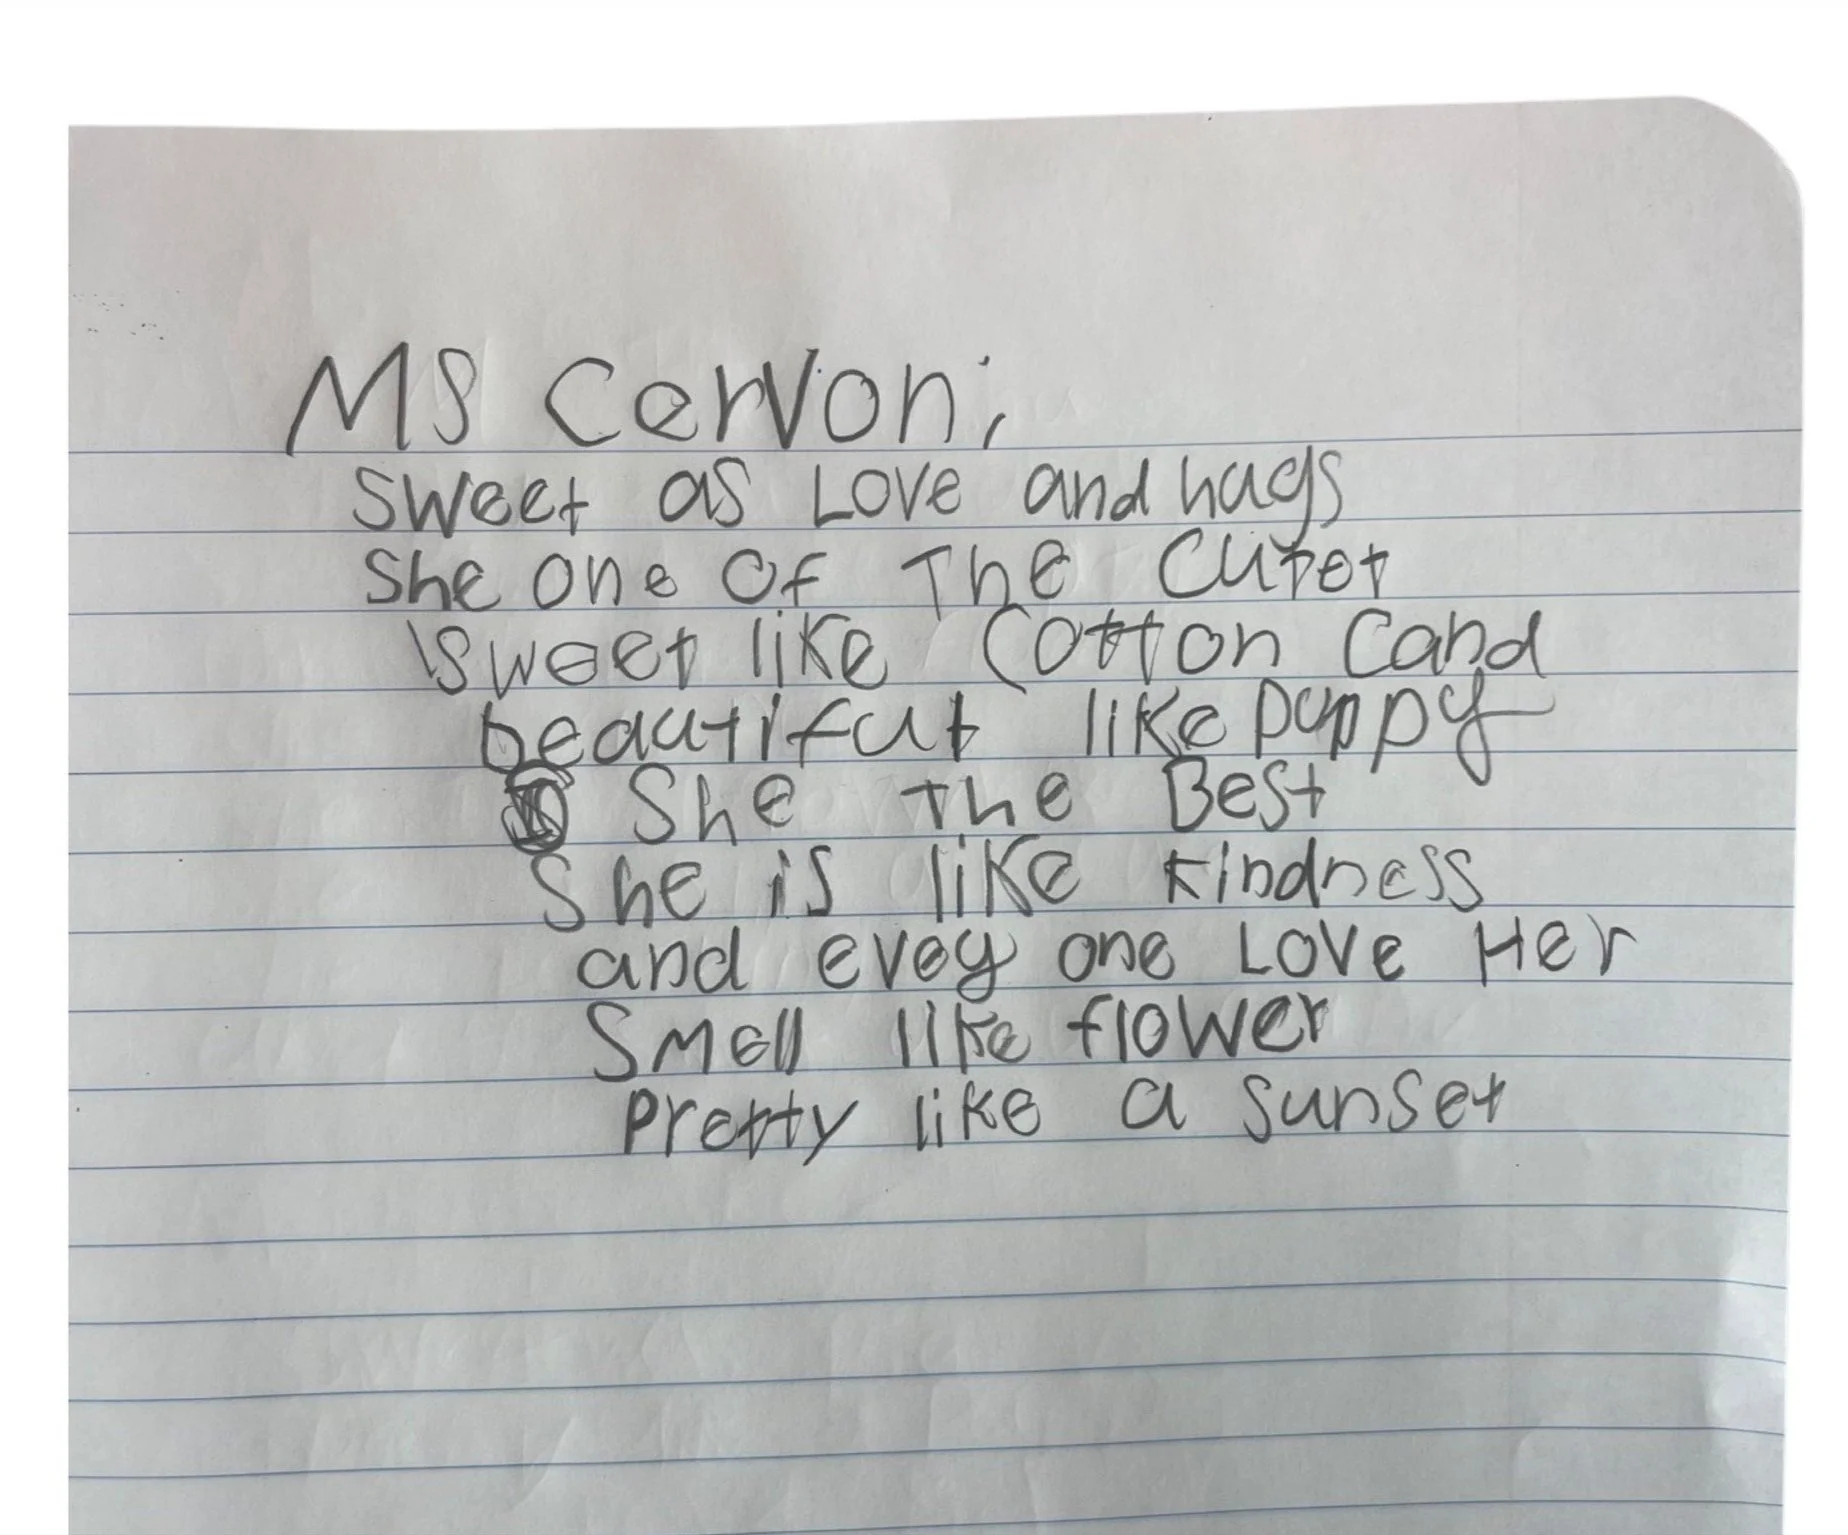 Ms Cervoni
Sweet as Love and hugs
She one of The Cutet
sweet like Cotton Cand
beautiful like puppy
She The Best
She is like kindness
and evey one Love Her
Smell like flower
Pretty like a sunset